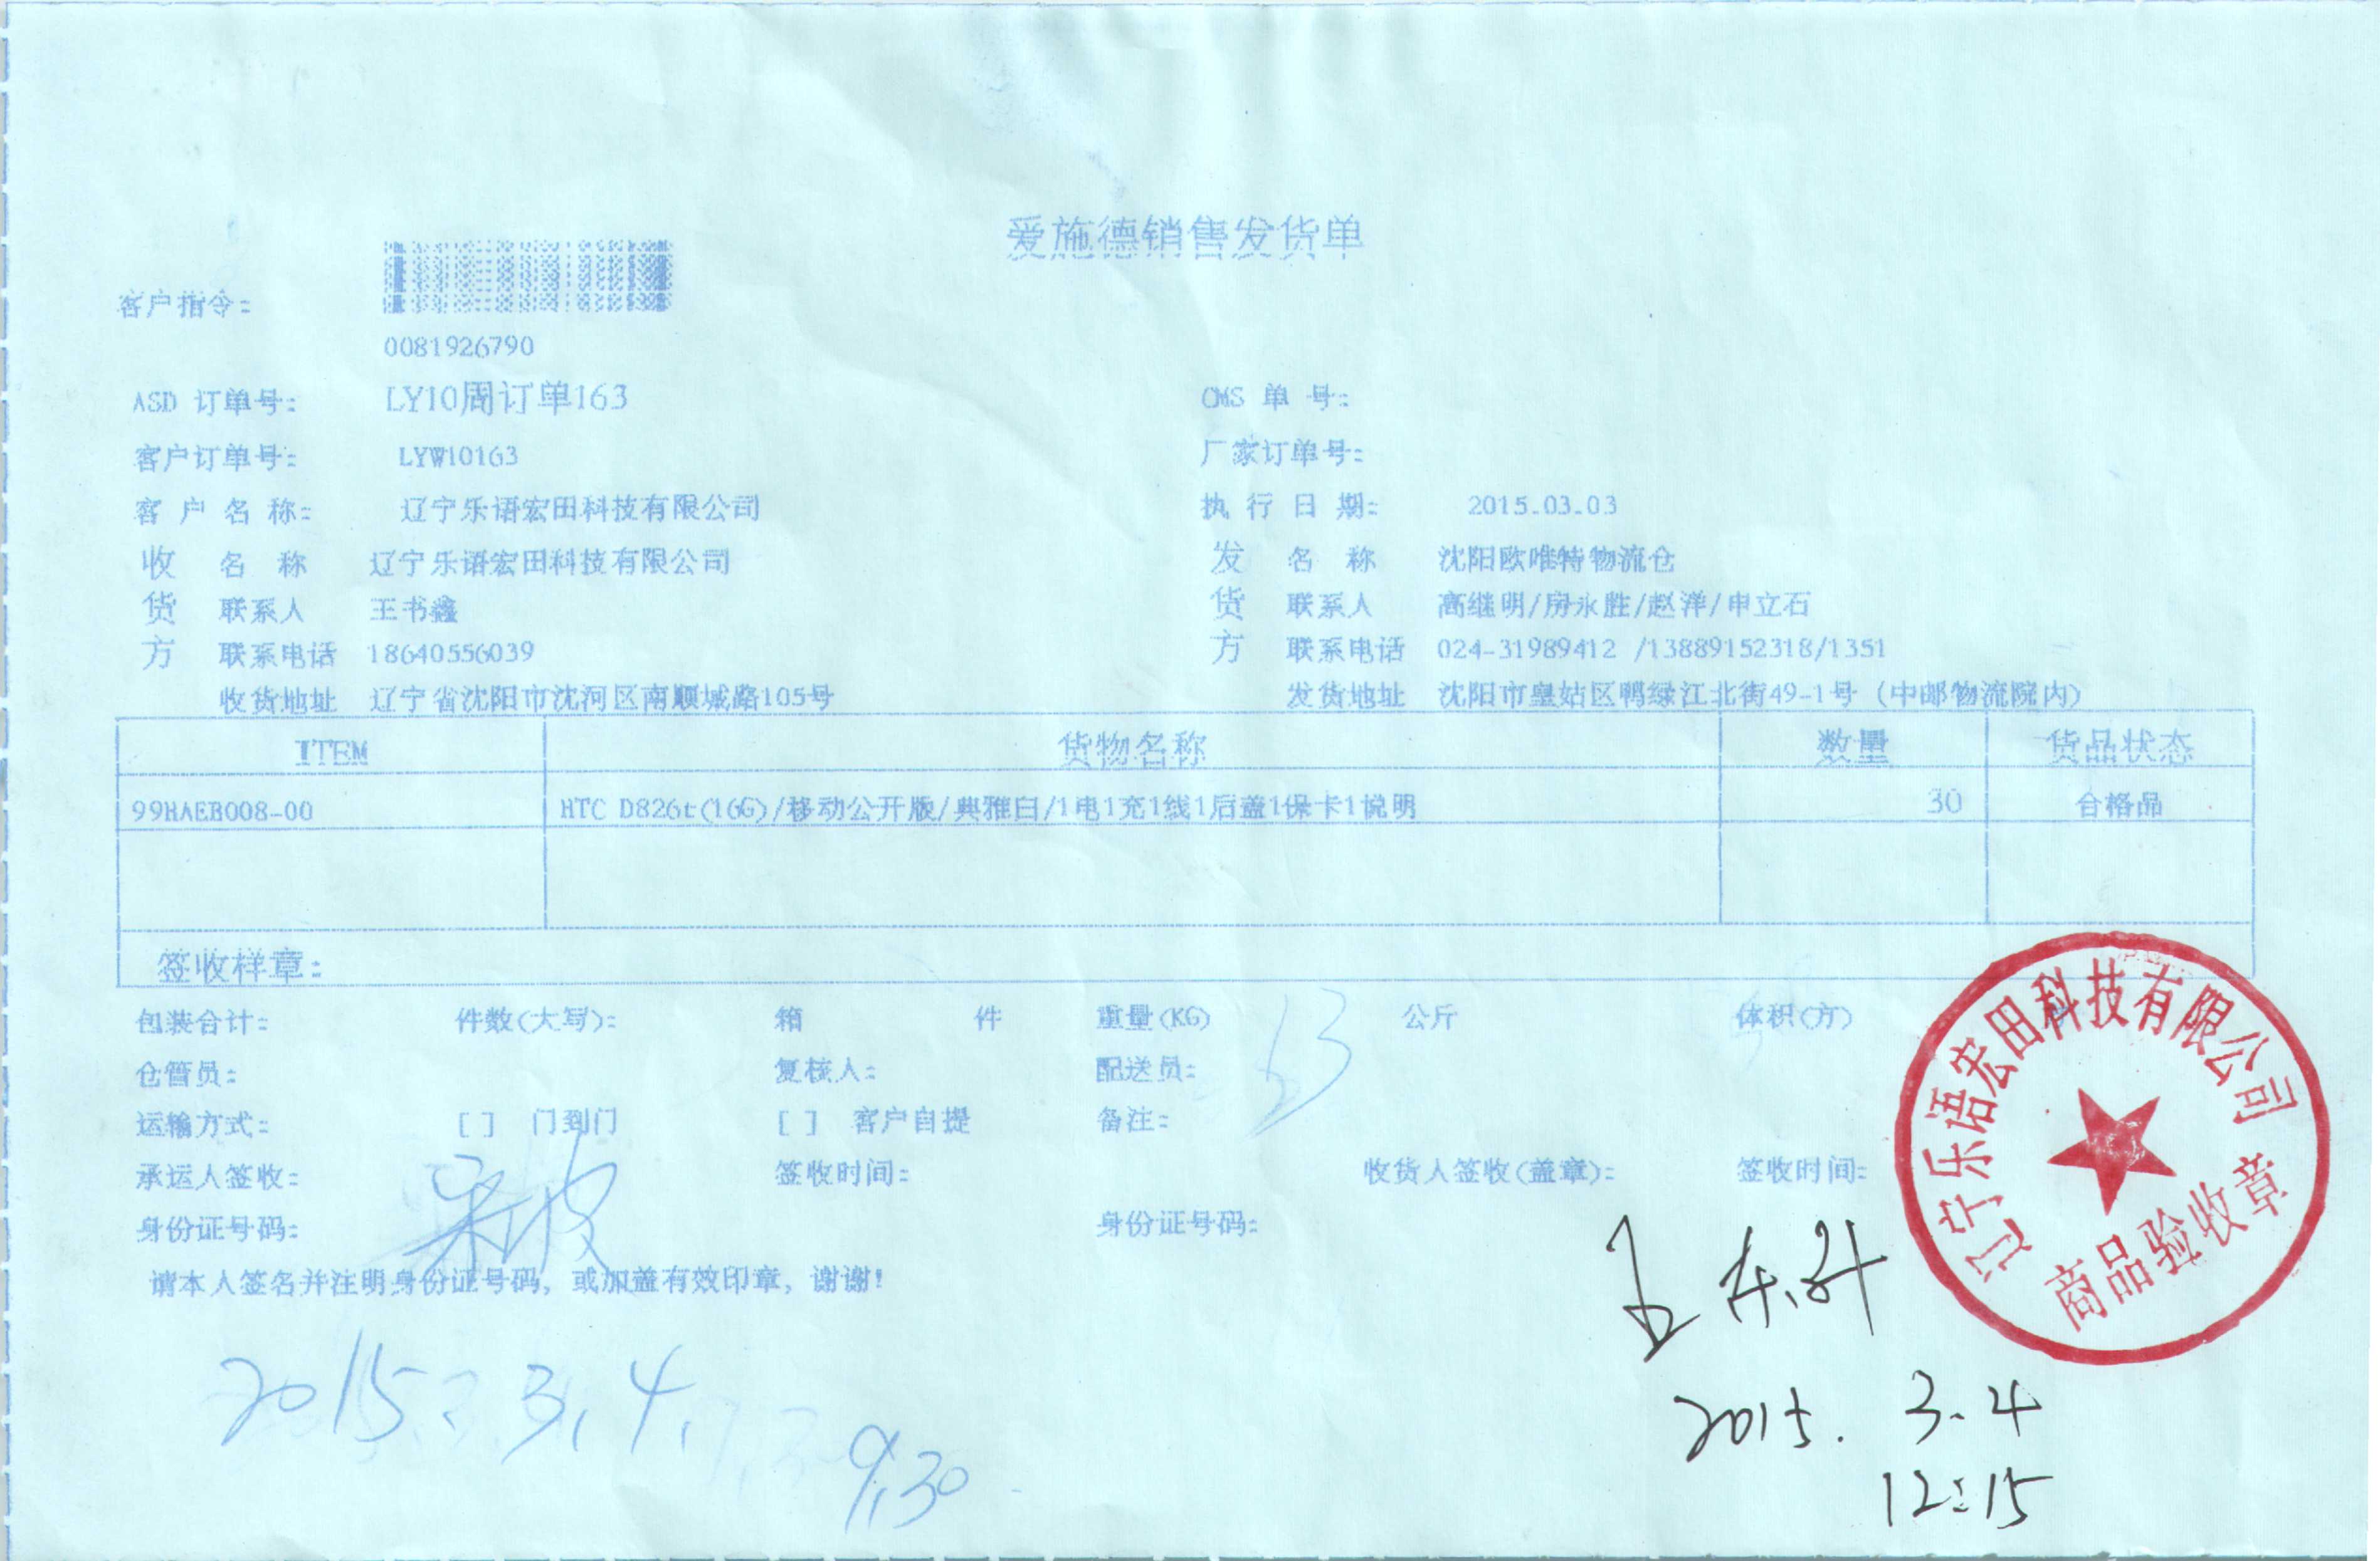 爱施德销售发货单
客户指令:
0081926790
ASD 订单号: LY10周订单163 CMS 单 号:
客户订单号: LYW10163 厂家订单号:
客 户 名 称: 辽宁乐语宏田科技有限公司 执 行 日 期: 2015.03.03
收 名 称 辽宁乐语宏田科技有限公司 发 名 称 沈阳欧唯特物流仓
货 联系人 王书鑫 货 联系人 高继明/房永胜/赵洋/申立石
方 联系电话 18640556039 方 联系电话 024-31989412 /13889152318/1351
收货地址 辽宁省沈阳市沈河区南顺城路105号 发货地址 沈阳市皇姑区鸭绿江北街49-1号 (中邮物流院内)
ITEM 货物名称 数量 货品状态
99HAEB008-00 HTC D826t(16G)/移动公开版/典雅白/1电1充1线1后盖1保卡1说明 30 合格品
签收样章:
包装合计: 件数(大写): 箱 件 重量(KG) 公斤 体积(方)
53
仓管员: 复核人: 配送员:
运输方式: [ ] 门到门 [ ] 客户自提 备注:
承运人签收: 签收时间: 收货人签收(盖章): 签收时间:
身份证号码: 身份证号码:
请本人签名并注明身份证号码, 或加盖有效印章, 谢谢!
辽宁乐语宏田科技有限公司
商品验收章
2015.3.4.
9:30
2015. 3.4
12:15